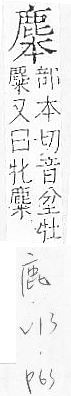 部本切音坌牡
麋又曰牝麋
鹿.
V13
.
P65